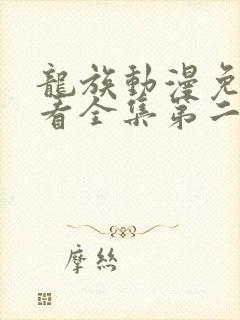 龍族動漫免
看全集第二
摩絲